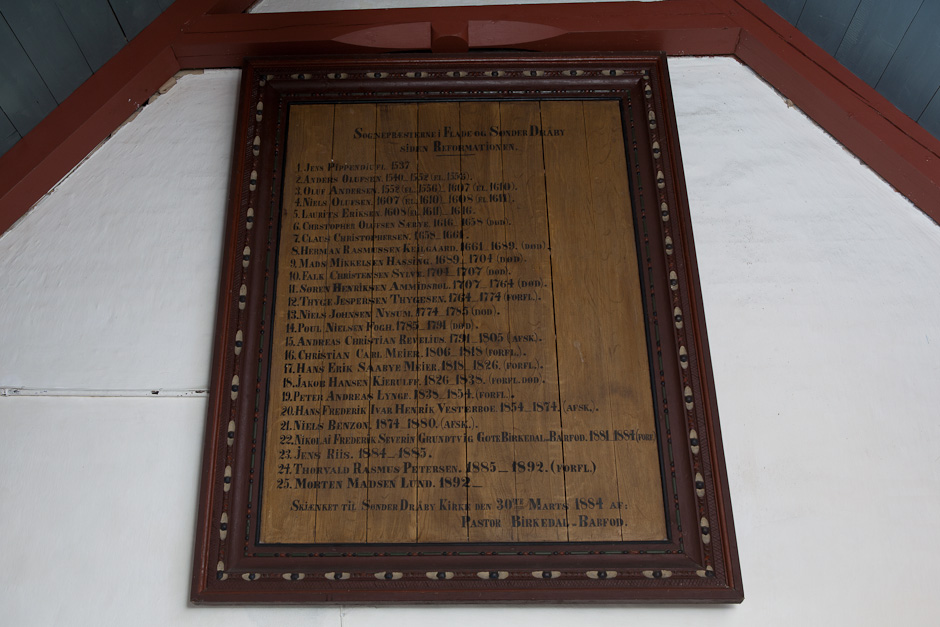 Sognepræsterne i Flade og Sønder Dråby
siden Reformationen.
1. Jens Pippendic fl. 1537
2. Anders Olufsen. 1540, 1552 (fl. 1558).
3. Oluf Andersen. 1558 (fl. 1556). 1607 (fl. 1600).
4. Niels Olufsen. 1607 (fl. 1610). 1608 (fl. 1611).
5. Laurits Eriksen. 1608 (fl. 1611)_1616.
6. Christopher Olufsen Særve. 1616_1658 (død).
7. Claus Christophersen. 1658_1661.
8. Herman Rasmussen Keilgaard. 1661_1689. (død).
9. Mads Mikkelsen Hassing. 1689_1704 (død).
10. Falk Christensen Sylve. 1704_1707 (død).
11. Søren Henriksen Ammidsbøl. 1707_1764 (død).
12. Thyge Jespersen Thygesen. 1764_1774 (forfl.).
13. Niels Johnsen Nysum. 1774_1785 (død).
14. Poul Nielsen Fogh. 1785_1791 (død).
15. Andreas Christian Revelius. 1791_1805 (afsk.).
16. Christian Carl Meier. 1806_1818 (forfl.).
17. Hans Erik Saabye Meier. 1818_1826. (forfl.).
18. Jakob Hansen Kierulff. 1826_1838. (forfl. død).
19. Peter Andreas Lynge. 1838_1854. (forfl.).
20. Hans Frederik Ivar Henrik Vesterboe. 1854_1874. (afsk.).
21. Niels Benzon. 1874_1880. (afsk.).
22. Nikolai Frederik Severin Grundtvig Gote Birkedal-Barfod. 1881_1884 (forf.
23. Jens Riis. 1884_1885.
24. Thorvald Rasmus Petersen. 1885_1892. (forfl.)
25. Morten Madsen Lund. 1892_
Skjænket til Sønder Dråby Kirke den 30te Marts 1884 af:
Pastor Birkedal-Barfod.